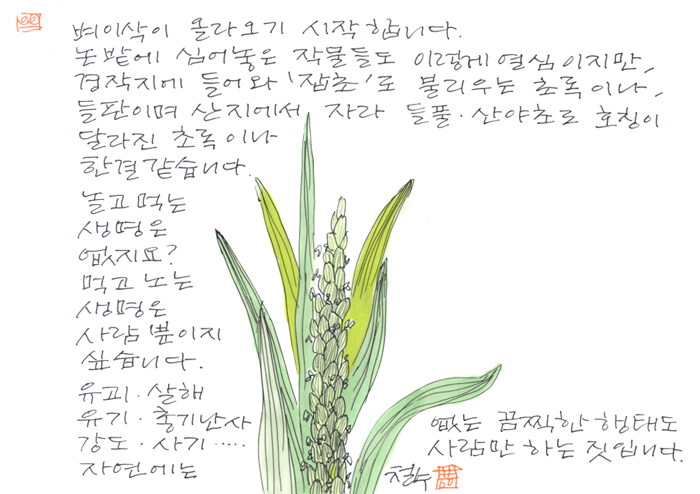 벼이삭이 올라오기 시작합니다.
논밭에 심어놓은 작물들도 이렇게 열심이지만,
경작지에 들어와 '잡초'로 불리우는 초록이나,
들판이며 산지에서 자라 들풀·산야초로 호칭이
달라진 초록이나
한결같습니다.
놀고 먹는
생명은
없지요?
먹고 노는
생명은
사람뿐이지
싶습니다.
유괴·살해
유기·흉기난사
강도·사기·····
자연에는
없는 끔찍한 행태도
사람만 하는 짓입니다.
철수